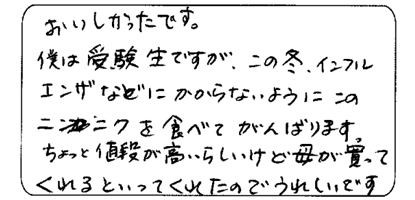 おいしかったです。
僕は受験生ですが、この冬、インフル
エンザなどにかからないようにこの
ニンニクを食べてがんばります。
ちょっと値段が高いらしいけど母が買って
くれるといってくれたのでうれしいです